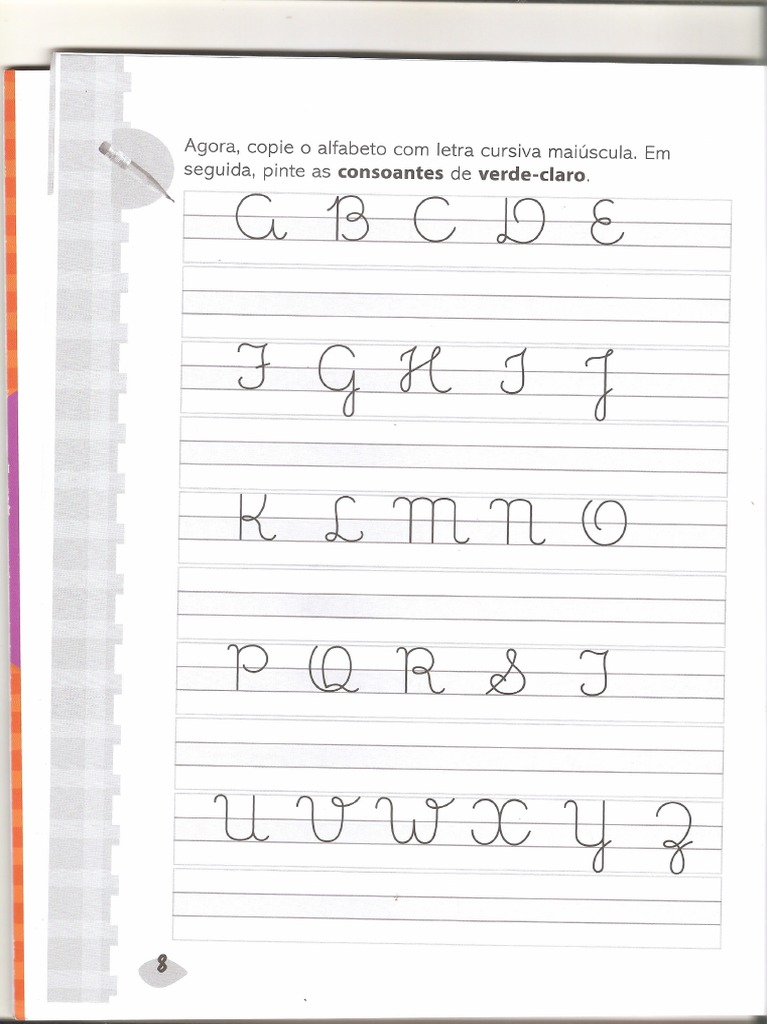 Agora, copie o alfabeto com letra cursiva maiúscula. Em
seguida, pinte as consoantes de verde-claro.
A B C D E
F G H I J
K L M N O
P Q R S T
U V W X Y Z
8